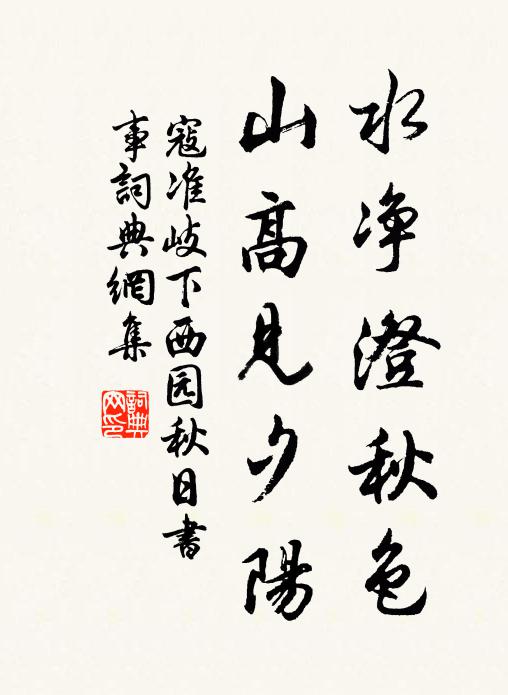 水净澄秋色
山高見夕陽
寇准岐下西园秋日書
事詞典網集
詞典
网印